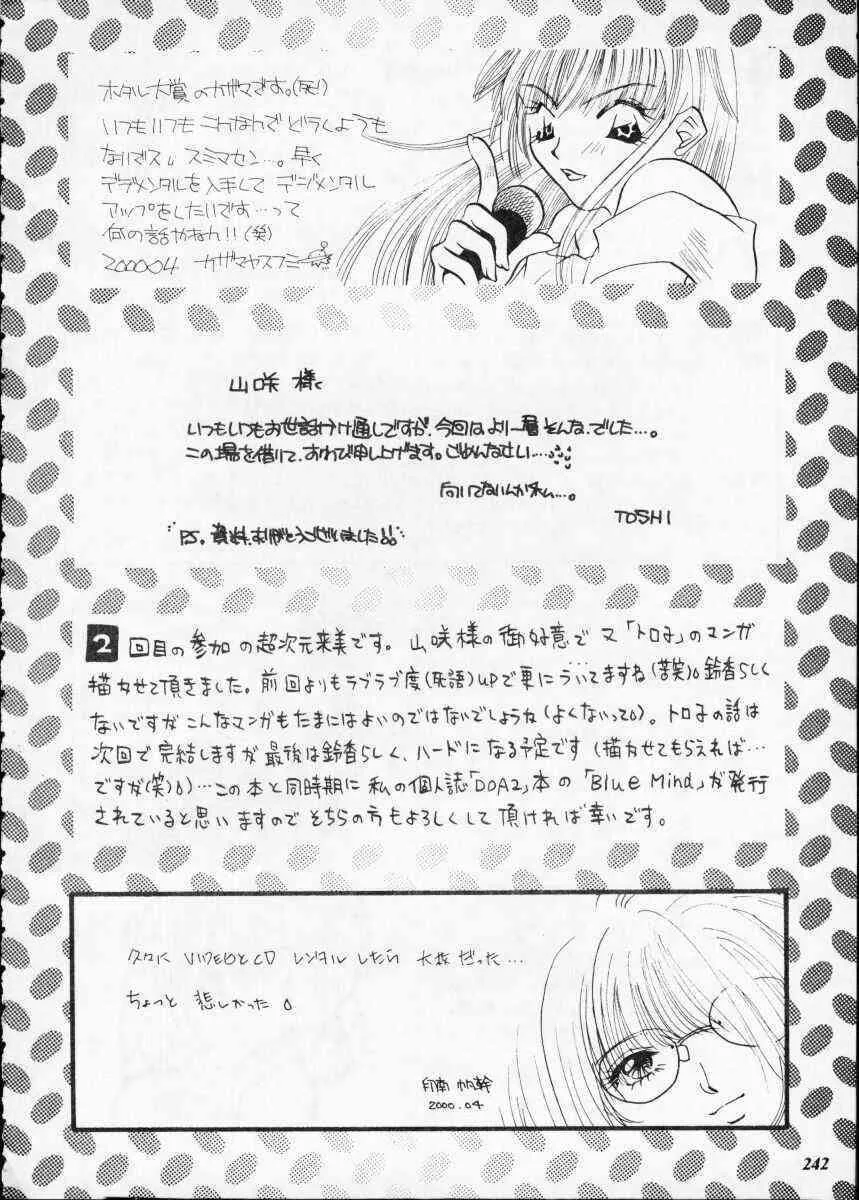 ホタル大賞のカザマです。(死!)
いつもいつもこんなんでどうしようも
なりマスレスミマセン…。早く
デジメンタルを入手してデジメンタル
アップをしたいです…って
何の話かなれ!!(笑)
2000.04 カザマヤスフミ
山咲様へ
いつもいつもお世話かけ通しですが、今回はより一層そんな、でした…。
この場を借りて、おわび申し上げます。ごめんなさい…
向いてないんかねぇ…。
TOSHI
PS。資料、ありがとうございました!!
2回目の参加の超次元来美です。山咲様の御好意でマ「トロ子」のマンガ
描かせて頂きました。前回よりもラブラブ度(死語)UPで更にういてますね(苦笑)。鈴香らしく
ないですがこんなマンガもたまにはよいのではないでしょうね(よくないって)。トロ子の話は
次回で完結しますが最後は鈴香らしく、ハードになる予定です(描かせてもらえれば…
ですが(笑))…この本と同時期に私の個人誌「DOA2」本の「Blue Mind」が発行
されていると思いますのでそちらの方もよろしくして頂ければ幸いです。
久々にVIDEOとCDレンタルしたら大抵だった…
ちょっと悲しかった。
2000.04
242